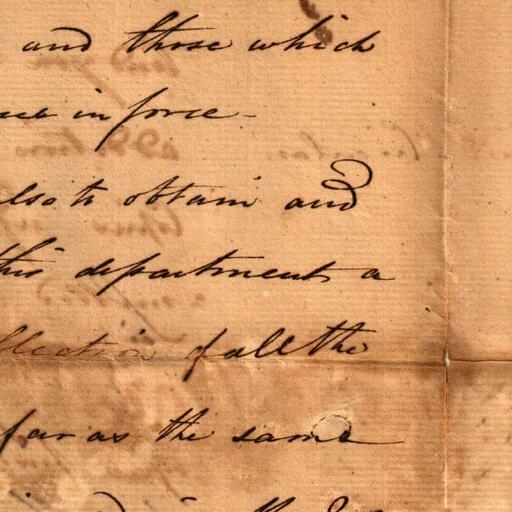 and those which
in force -
also to obtain and
this department a
llection of all the
far as the same